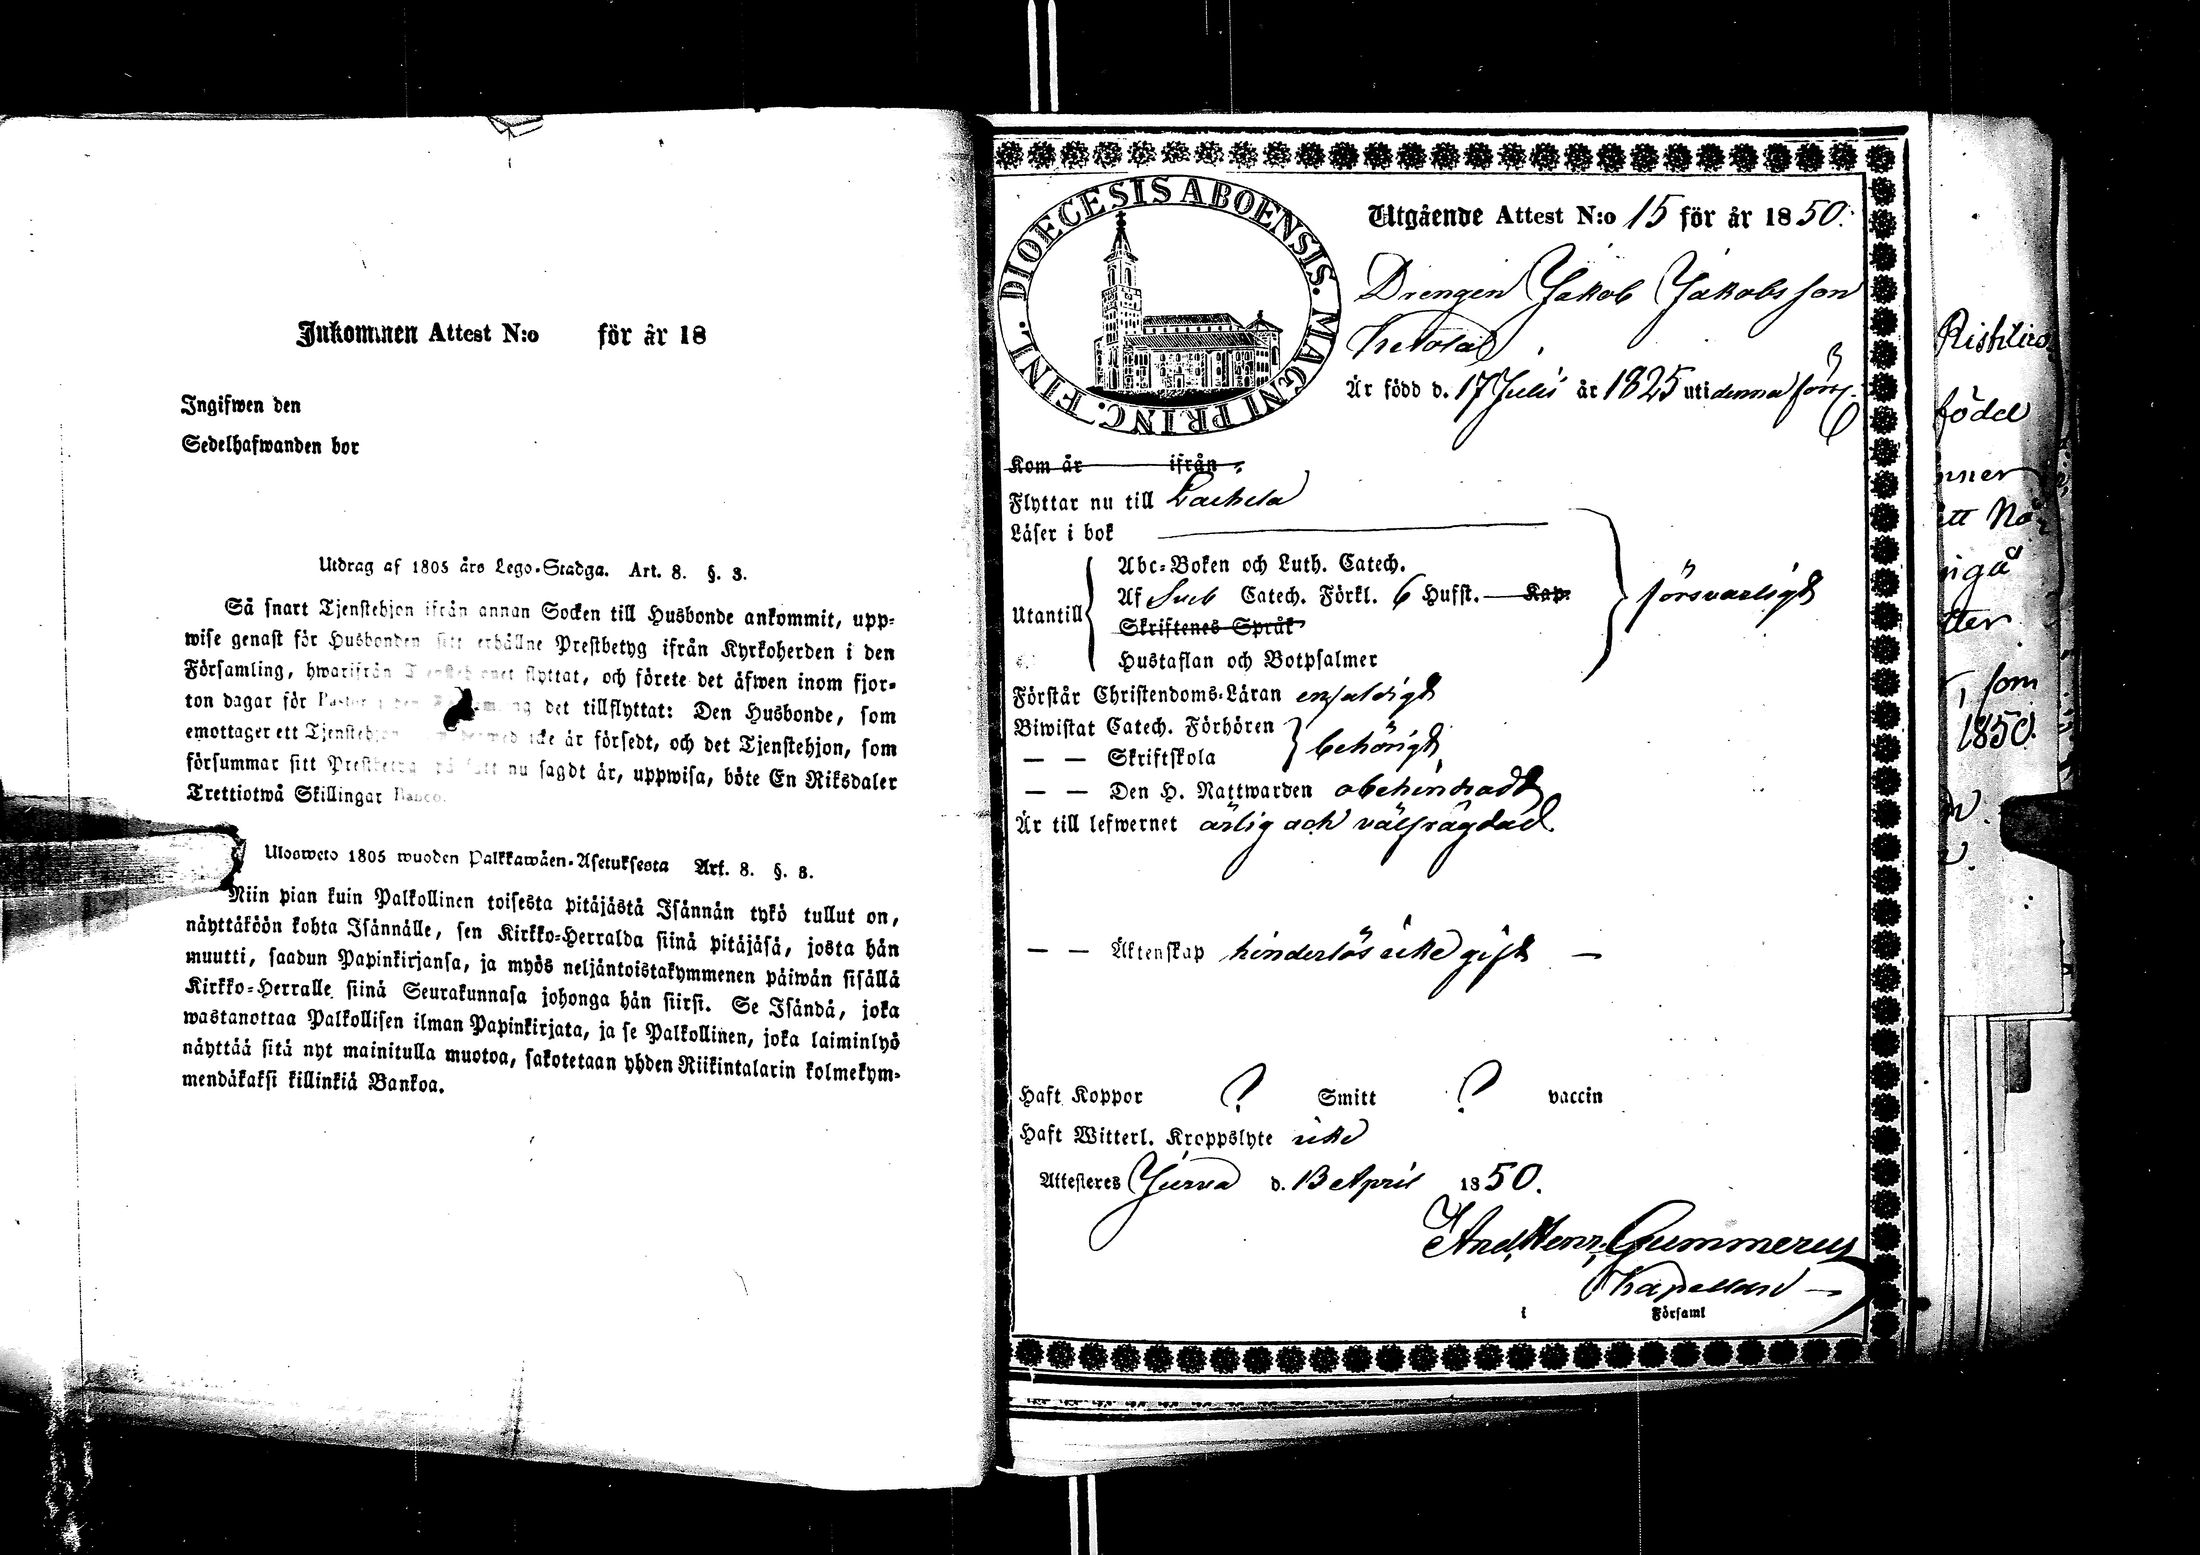 Inkommen Attest N:o för år 18
Ingifwen den
Sedelhafwanden bor
Utdrag af 1805 års Lego-Stadga. Art. 8. §. 3.
Så snart Tjenstehjon ifrån annan Socken till Husbonde ankommit, upp=
wise genast för Husbonden sitt erhållne Prestbetyg ifrån Kyrkoherden i den
Församling, hwarifrån Tjenstehjonet flyttat, och förete det äfwen inom fjor=
ton dagar för Pastor i den det tillflyttat: Den Husbonde, som
emottager ett Tjenstehjon, som dermed icke är försedt, och det Tjenstehjon, som
försummar sitt Prestbetyg på sätt nu sagdt är, uppwisa, böte En Riksdaler
Trettiotwå Skillingar Banco.
Uloswets 1805 wuoden Palkkawäen-Asetuksesta Art. 8. §. 3.
Niin pian kuin Palkollinen toisesta pitäjästä Isännän tykö tullut on,
näyttäköön kohta Isännälle, sen Kirkko=Herralda siinä pitäjäsä, josta hän
muutti, saadun Papinkirjansa, ja myös neljäntoistakymmenen päiwän sisällä
Kirkko=Herralle siinä Seurakunnasa johonga hän siirsi. Se Isändä, joka
wastanottaa Palkollisen ilman Papinkirjata, ja se Palkollinen, joka laiminlyö
näyttää sitä nyt mainitulla muotoa, sakotetaan yhden Riikintalarin kolmekym=
mendäkaksi killinkiä Bankoa.
DIOECESIS ABOENSIS. MAGNI PRINC. FINL.
Utgående Attest N:o 15 för år 1850.
Drengen Jakob Jakobsson
Ketola
Är född d. 17 Julii år 1825 uti denna förs.
Kom år ifrån
Flyttar nu till Laihela
Läser i bok
Abc=Boken och Luth. Catech.
Af Sveb Catech. Förkl. 6 Hufst. Kap.
Utantill försvarligt
Skriftenes Språk
Hustaflan och Botpsalmer
Förstår Christendoms=Läran enfaldigt
Biwistat Catech. Förhören
behörigt
— — Skriftskola
— — Den H. Nattwarden obehindradt
Är till lefwernet ärlig och välfrägdad
— — Äktenskap hinderlös icke gift —
Haft Koppor ? Smitt ? vaccin
Haft Witterl. Kroppslyte icke
Attesteres Jurva d. 13 April 1850.
And. Henr. Gummerus
Kapellan
i Församl
födel
ett
, som
1850.